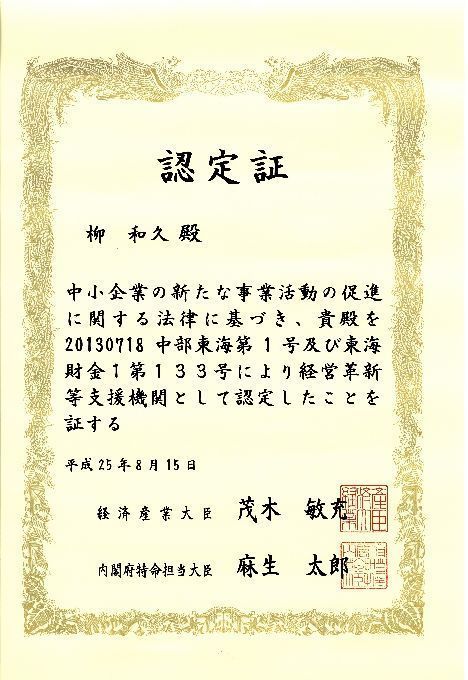 認定証
柳 和久 殿
中小企業の新たな事業活動の促進
に関する法律に基づき、貴殿を
20130718 中部東海第1号及び東海
財金1第133号により経営革新
等支援機関として認定したことを
証する
平成25年8月15日
経済産業大臣 茂木 敏充
内閣府特命担当大臣 麻生 太郎